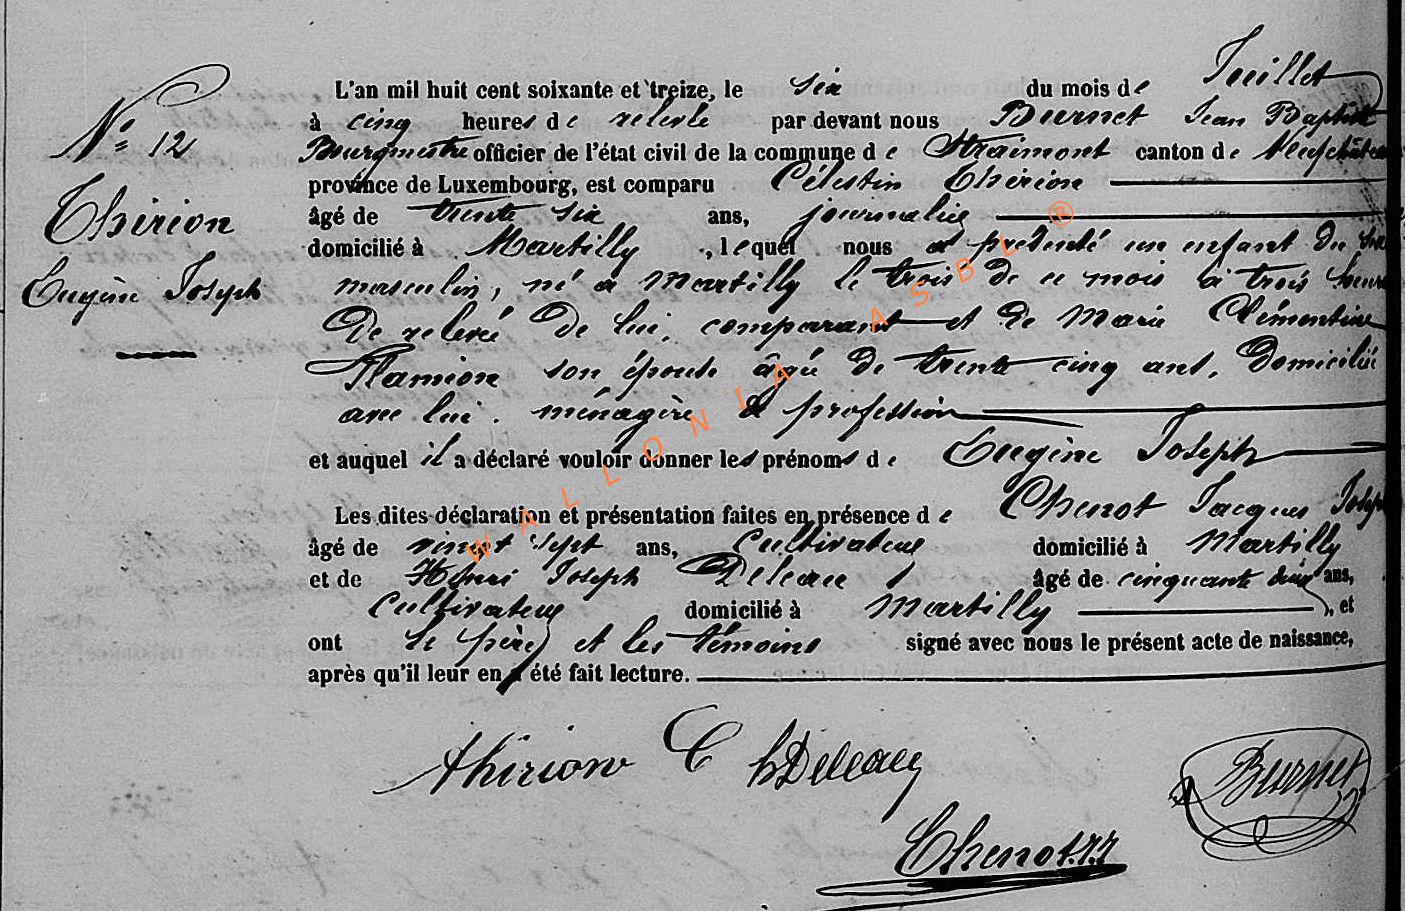 N° 12
Thirion
Eugène Joseph
L'an mil huit cent soixante et treize, le six du mois de Juillet
à cinq heures de relevée par devant nous Burnet Jean Baptiste
Bourgmestre officier de l'état civil de la commune de Straimont canton de Neufchâteau
province de Luxembourg, est comparu Célestin Thirion
âgé de trente six ans, journalier
domicilié à Martilly, lequel nous a présenté un enfant du sexe
masculin, né à Martilly le trois de ce mois à trois heures
de relevée de lui, comparant et de Marie Clémentine
Flamion son épouse âgée de trente cinq ans, domiciliée
avec lui. ménagère de profession
et auquel il a déclaré vouloir donner les prénoms de Eugène Joseph
Les dites déclaration et présentation faites en présence de Chenot Jacques Joseph
âgé de vingt sept ans, Cultivateur domicilié à Martilly
et de Henri Joseph Deleau âgé de cinquante deux ans,
Cultivateur domicilié à Martilly, et
ont le père et les témoins signé avec nous le présent acte de naissance,
après qu'il leur en a été fait lecture.
Thirion C hDeleau
Burnet
Chenot.J.J
WALLONIA ASBL ®